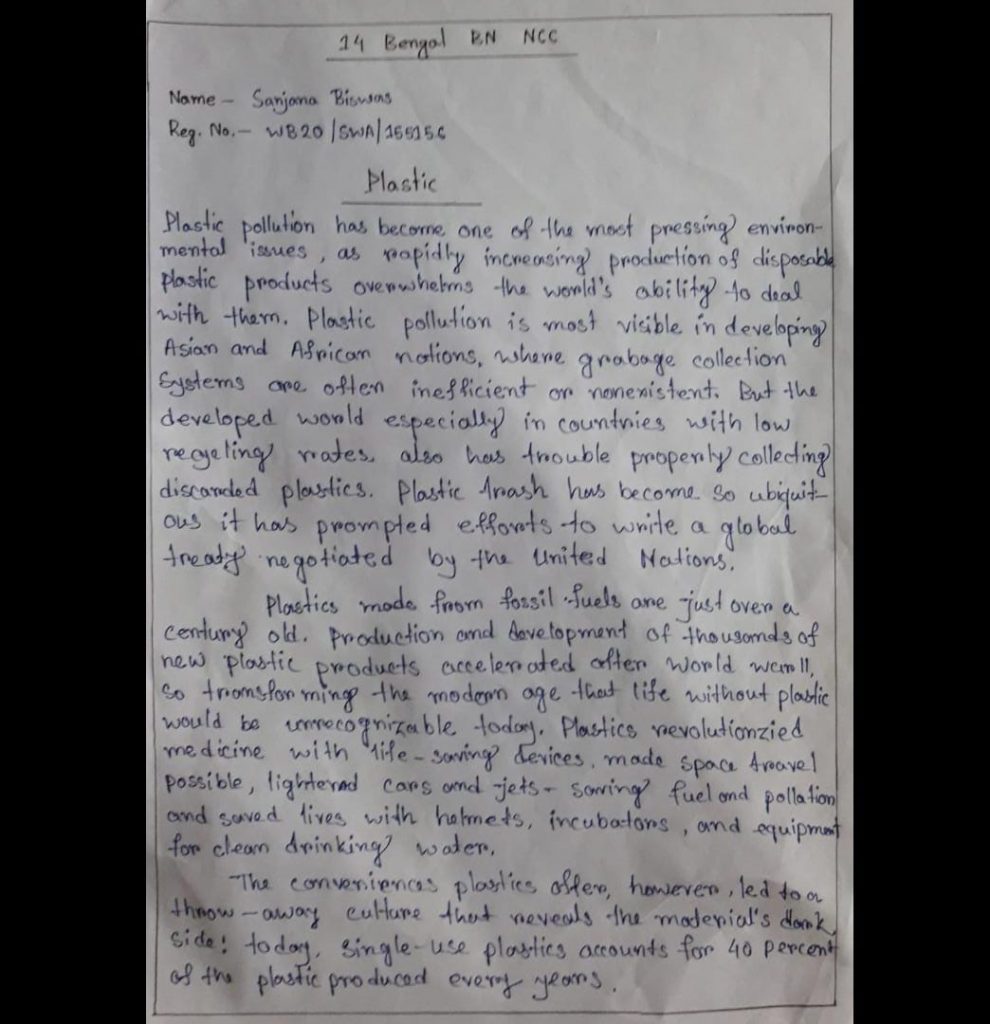 14 Bengal BN NCC
Name - Sanjana Biswas
Reg. No. - WB20/SWA/155156
Plastic
Plastic pollution has become one of the most pressing environ-
mental issues, as rapidly increasing production of disposable
plastic products overwhelms the world's ability to deal
with them. Plastic pollution is most visible in developing
Asian and African nations, where grabage collection
Systems are often inefficient or nonexistent. But the
developed world especially in countries with low
recycling rates also has trouble properly collecting
discarded plastics. Plastic trash has become so ubiquit-
ous it has prompted efforts to write a global
treaty negotiated by the United Nations.
Plastics made from fossil fuels are just over a
century old. Production and development of thousands of
new plastic products accelerated after World War II,
so transforming the modern age that life without plastic
would be unrecognizable today. Plastics revolutionzied
medicine with life-saving devices, made space travel
possible, lightered cars and jets - saving fuel and pollation
and saved lives with helmets, incubators, and equipment
for clean drinking water.
The conveniences plastics offer, however, led to a
throw-away culture that reveals the material's dark
side: today, single-use plastics accounts for 40 percent
of the plastic produced every years.